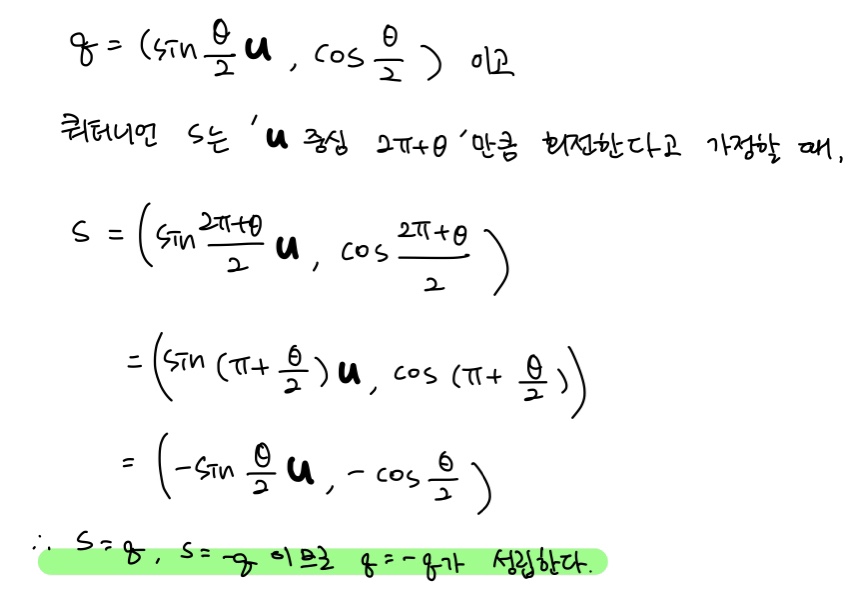 q = (sin θ/2 u , cos θ/2 ) 이고
쿼터니언 s는 'u 중심 2π+θ'만큼 회전한다고 가정할 때,
s = (sin (2π+θ)/2 u , cos (2π+θ)/2 )
= (sin (π+ θ/2) u , cos (π+ θ/2))
= (-sin θ/2 u , - cos θ/2 )
∴ s=q, s=-q 이므로 q=-q가 성립한다.